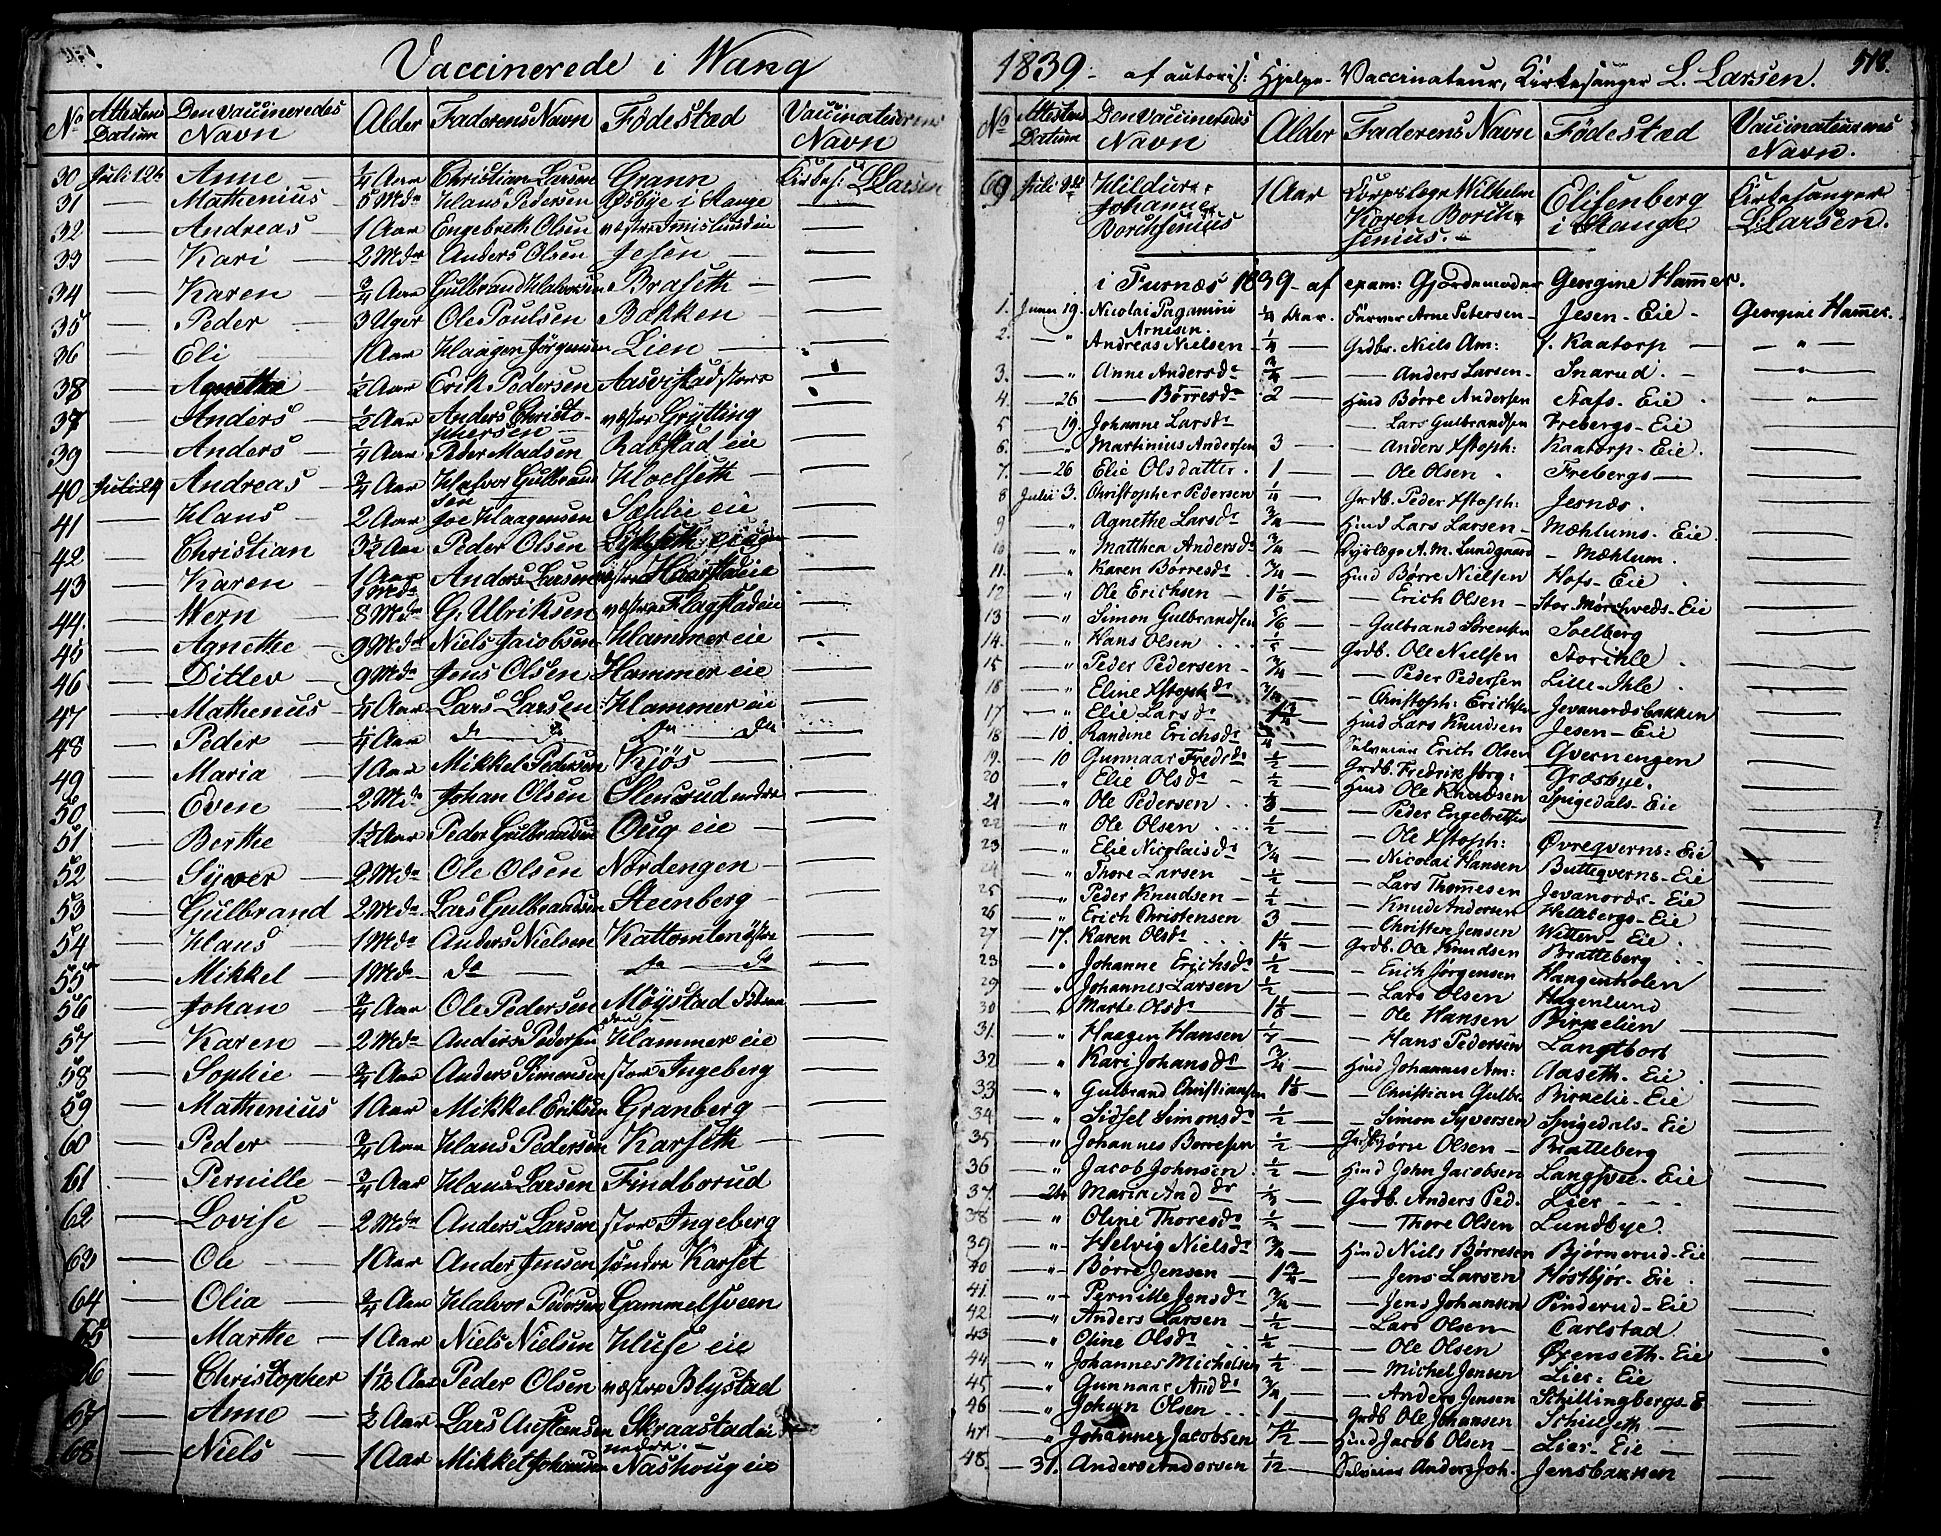 Vaccinerede i Wang
No Attestens Datum Den Vaccineredes Navn Alder Faderens Navn Fødestad Vaccinateurens Navn
30 Juli 12te Anne 1/4 Aar Christian Larsen Grann Kirkes: L. Larsen
31 Mathenius 5 Mdr Hans Pedersen Østbye i Stange
32 Andreas 1 Aar Engebreth Olsen vestre
33 Kari 2 Mdr Anders Olsen Jesen
34 Karen 3/4 Aar Gulbrand Halvorsen Braseth
35 Peder 3 Uger Ole Poulsen Bakken
36 Eli 1 Aar Haagen Jørgensen Lien
38 Agnethe 1/2 Aar Erik Pedersen Aasvistad store
37 Anders 1/2 Aar Anders Christophersen vestre Grytting
39 Anders 1/4 Aar Peder Madsen Rabstad eie
40 Juli 29 Andreas 3/4 Aar Halvor Gulbrandsen Hoelseth
41 Hans 2 Aar Joe Haagensen Sæhlie eie
42 Christian 3 1/2 Aar Peder Olsen
43 Karen 1 Aar Anders Larsen vestre Haarstad eie
44 Wern 8 Mdr G. Ulriksen vestre Flagstad eie
45 Agnethe 9 Mdr Niels Jacobsen Hammer eie
46 Ditlev 9 Mdr Jens Olsen Hammer eie
47 Mathenius 1/4 Aar Lars Larsen Hammer eie
48 Peder 1/4 Aar do do do do
49 Maria 1 Aar Mikkel Pedersen Kjøs
50 Even 2 Mdr Johan Olsen Olensrud nedre
51 Berthe 1 1/2 Aar Peder Gulbrandsen Oug eie
52 Syver 2 Mdr Ole Olsen Nordengen
53 Gulbrand 2 Mdr Lars Gulbrandsen Steenberg
54 Hans 1 Mdr Anders Nielsen Kattomten østre
55 Mikkel 1 Mdr do do do
56 Johan 3/4 Aar Ole Pedersen Møystad
57 Karen 2 Mdr Anders Pedersen Hammer eie
58 Sophie 3/4 Aar Anders Simensen store Ingeberg
59 Mathenius 1 Aar Mikkel Eriksen Granberg
60 Peder 3/4 Aar Hans Pedersen Karseth
61 Pernille 3/4 Aar Hans Larsen Findborud
62 Lovise 2 Mdr Anders Larsen store Ingeberg
63 Ole 1 Aar Ander Jensen søndre Karset
64 Olia 3/4 Aar Halvor Pedersen Gammelsveen
65 Marthe 1 Aar Niels Nielsen Huse eie
66 Christopher 1 1/2 Aar Peder Olsen vestre Blystad
67 Anne 1/2 Aar Lars Austensen Skraastad eie
nedre
68 Niels 1 Aar Mikkel Johansen Nashoug eie
1839 af autoris: Hjelpe-Vaccinateur, Kirkesanger L. Larsen. 518.
No Attestens Datum Den Vaccineredes Navn Alder Faderens Navn Fødestad Vaccinateurens Navn.
69 Juli Hildur 1 Aar Corpslæge Wilhelm Elisenberg Kirkesanger
Johanne Koren Borch- i Stange L. Larsen.
Borchsenius senius.
i Furnæs 1839 af exam: Gjordemoder Gengine Hammer.
1. Juni 19. Nicolai Paganini Arnesen. 1/4 Aar. Farver Arne Petersen Jesen-Eie Gengine Hammer.
2. " Andreas Nielsen 1/4 Grdbr. Niels Am: Kaatorp "
3. " Anne Andersdr 3/4 Anders Larsen Snarud. "
4. 26 Børresdr 2 Huusmd Børre Andersen Stafs-Eie "
5 19. Johanne Larsdr Lars Gulbrandsen Frebergs-Eie
6. " Martinius Andersen 3 Anders Xstoph: Kaatorp-Eie.
7. 26 Elie Olsdatter. 1 Ole Olsen Frebergs
8 Julii 3. Christopher Pedersen 1/4 Grdb. Peder Xstoph: Jesnæs.
9 " Agnethe Larsdr 3/4 Huusmd Lars Larsen Mæhlums-Eie
10 " Matthea Andersdr 3/4 Dyrlæge A. M. Lundgaard Mæhlum.
11. " Karen Børresdr 3/4 Huusmd Børre Nielsen Hofs-Eie
12 " Ole Erichsen Erich Olsen Stor-Mørchveds-Eie
13 " Simon Gulbrandsen 5/6 Gulbrand Sørensen Soelberg
14. " Hans Olsen Grdb. Ole Nielsen Storihle
15 " Peder Pedersen 3/4 Peder Pedersen Lille-Ihle
16 " Eline Xstophdr 3/4 Christoph: Erichsen Jevanordsbakken
17 " Elie Larsdr 1 3/4 Huusmd Lars Knudsen Jesen-Eie
18 10. Randine Erichsdr 3/4 Selveier Erich Olsen Qvernengen
19. 10 Gunnaar Fredrdr 1/2 Grdb. Fredrik Jørg: Græsbye.
20 " Elie Olsdr 1/2 Huusmd Ole Knudsen Spigedals-Eie
21 " Ole Pedersen Peder Engebretsen
22 " Ole Olsen 1/2 Ole Xstoph: Øvreqverns-Eie
23 " Elie Nicolaisdr 3/4 Nicolai Hansen Butteqverns-Eie
24 " Thore Larsen 1/2 Lars Thomesen Jevanords-Eie
25 " Peder Knudsen 1/2 Knud Andersen Helsbergs-Eie
26 " Erich Christensen 3 Christen Jensen Witten-Eie
27 17. Karen Olsdr Grdb. Ole Knudsen Bratteberg
28 " Johanne Erichsdr 1/2 Erich Jørgensen Haugenholen
29 " Johannes Larsen 1/2 Lars Olsen Hagenlund
30 " Marte Olsdr Ole Hansen Birkelien
31. " Haagen Hansen Hans Pedersen Langtbort
32. " Kari Johansdr 3/4 Huusmd Johannes Am: Aaseth-Eie
33 " Gulbrand Christiansen Christian Gulbr: Birkelie-Eie
34 " Sidsel Simonsdr 1/2 Simon Syversen Spigedals-Eie
35 " Johannes Børresen 1/2 Olsen Bratteberg
36 " Jacob Johnsen 1/2 Huusmd John Jacobsen Langsvee-Eie
37. 24 Maria Anddr Grdb. Anders Ped. Lier
38 " Oline Thoresdr Thore Olsen Lundbye.
39 " Helvig Nielsdr 3/4 Huusmd Niels Børresen Bjørnerud-Eie
40 " Børre Jensen 1 3/4 Jens Larsen Høstbjør-Eie
41. " Pernille Jensdr 3/4 Jens Johansen Pinderud-Eie
42 " Anders Larsen 1/2 Lars Olsen Carlstad
43 " Oline Olsdr 1/2 Ole Olsen Øxenseth-Eie
44 " Johannes Michelsen 1/2 Michel Jensen Lier-Eie
45 " Gunnaar Anddr 3/4 Anders Jensen Schillingbergs-E
46 " Johan Olsen 1 Grdb Ole Johansen Schielseth
47 " Johannes Jacobsen Huusmd Jacob Olsen Lier-Eie
48. 31. Anders Andersen 1/12 Selveier Anders Joh. Jensbakken